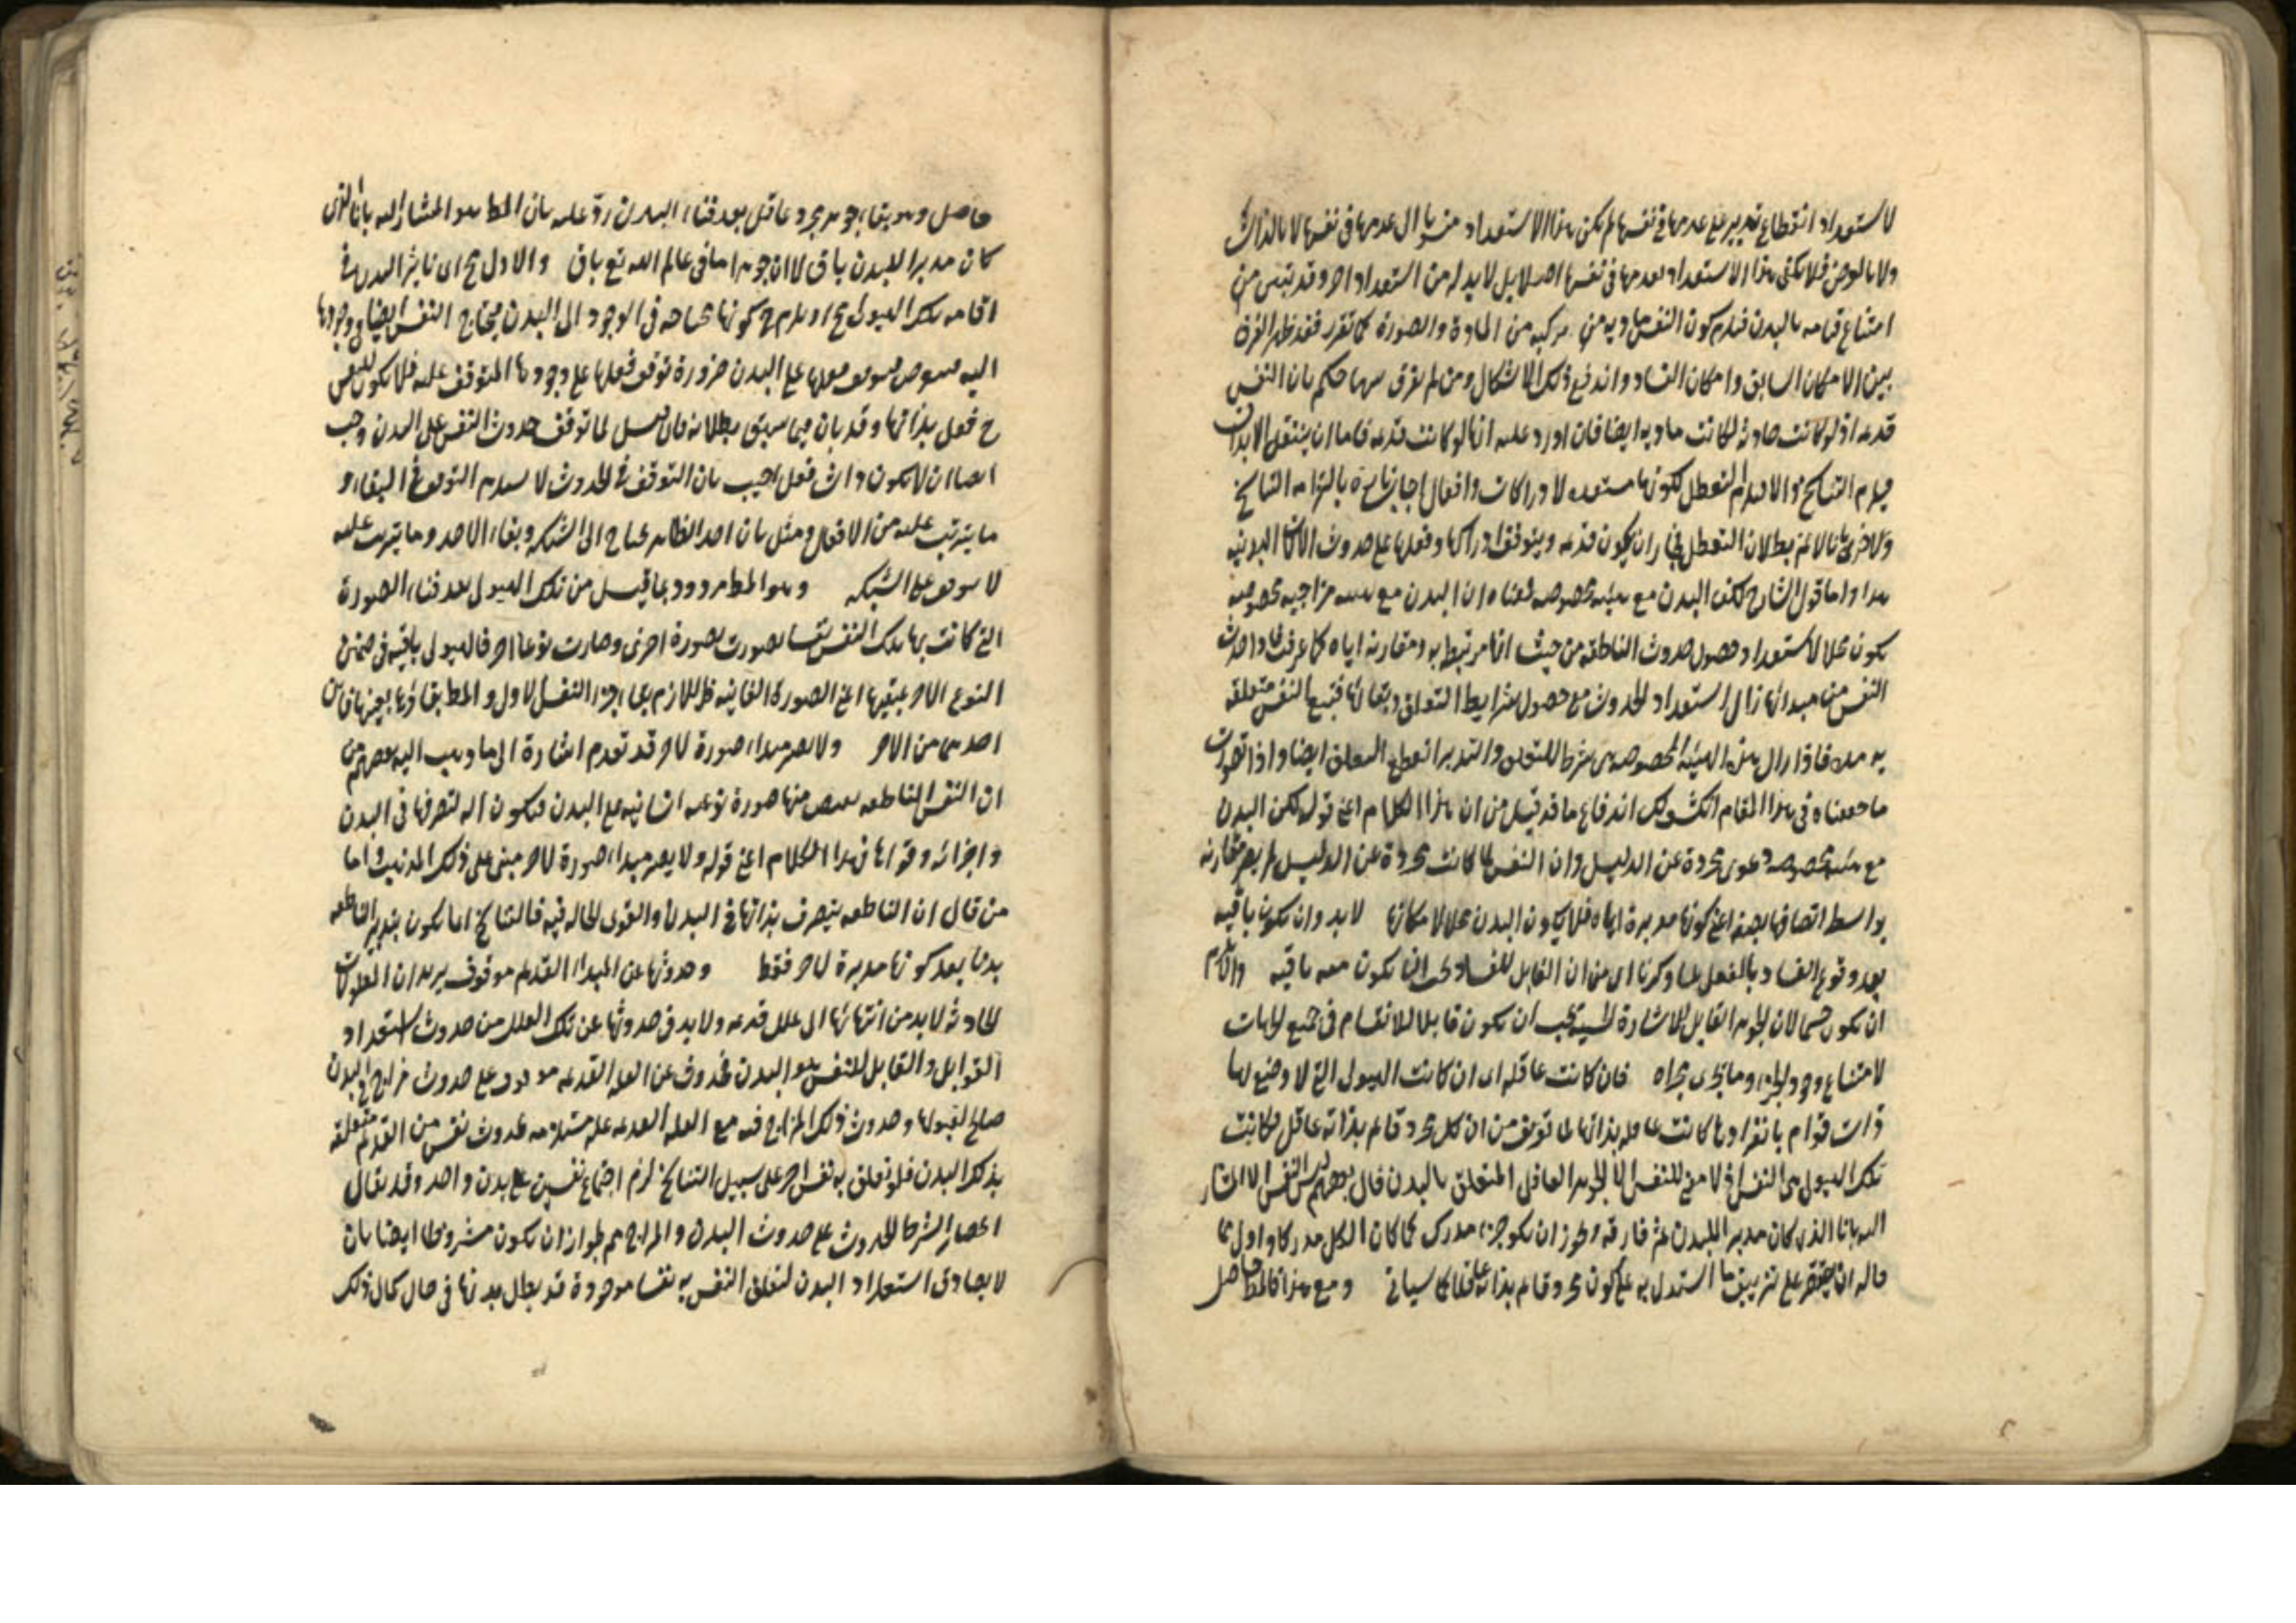 لاستعداد انقطاع تدبير على عدمها في نفسها لم يكن هذا الاستعداد منسوبا الى عدمها في نفسها لا بالذات
ولا بالعرض فلا يكفي هذا الاستعداد لعدمها في نفسها اصلا بل لا بد له من استعداد اخر وقد تبين من
امتناع قيامه بالبدن فيلزم كون النفس مادية من مركبه من المادة والصورة كما تقرر فقد ظهر الفرق
بين الامكان السابق وامكان الفساد واندفع ذلك الاشكال ومن لم يفرق بينهما حكم بان النفس
قديمه اذ لو كانت حادثه لكانت ماديه ايضا فان اورد عليه انها لو كانت قديمه فاما ان ينتقل الابدان
فيلزم التناسخ والا فيلزم التعطل لكونها مستعده لادراكات وافعال اجاب تارة بالتزامه التناسخ
واخرى بانا لا نم بطلان التعطل فجاز ان يكون قديمه ويتوقف ادراكها وفعلها على حدوث الالات البدنيه
هذا واما قول الشارح لكن البدن مع هيئه مخصوصه فمعناه ان البدن مع هيئه مزاجيه مخصوصه
يكون محلا لاستعداد حصول حدوث الناطقه من حيث انها مرتبط به ومقارنه اياه كما عرفت فاذا حدث
النفس من مبدائها زال استعداد الحدوث مع حصول شرايط التعلق وبقائها فتبقى النفس متعلقه
به مده فاذا زال هذه الهيئه المخصوصه هي شرط للتعلق والتدبر انقطع التعلق ايضا واذا تصورت
ما حققناه في هذا المقام انكشف لك اندفاع ما قد قيل من ان هذا الكلام اعني قوله لكن البدن
مع هيئه مخصوصه دعوى مجردة عن الدليل وان النفس لما كانت مجردة عن الدليل لم يصر مقارنه
بواسطه اتصافها بصفه اعني كونها مدبرة اياه فلا يكون البدن محلا لامكانها لا بد وان تكون باقيه
بعد وقوع الفساد بالفعل لما ذكرنا اي من ان القابل للفساد يجب ان تكون معه باقيه والا لزم
ان تكون جسما لان الجوهر القابل للاشارة الحسيه يجب ان تكون قابلا للانقسام في جميع الجهات
لامتناع وجود الجزء وما يجري مجراه فان كانت عاقله اي ان كانت الهيولى التي لا وضع لها
ذات قوام بانفرادها كانت عاقله بذاتها لما تقرر من ان كل مجرد قائم بذاته عاقل فكانت
تلك الهيولى هي النفس اذ لا معنى للنفس الا الجوهر العاقل المتعلق بالبدن قال بعضهم ليس النفس الا المشار
اليه بانا الذي كان مدبرا للبدن ثم فارقه وجوز ان يكون جزء مدرك كما كان الكل مدركا واولى بما
قاله ان يقتصر على تزييف ما استدل به على كون مجرد قائم بذاته عاقلا كما سياتي ومع هذا فالمط حاصل
حاصل وهو بقاء جوهر مجرد عاقل بعد فناء البدن رد عليه بان المط هو المشار اليه بانا الذي
كان مدبرا للبدن باق لا ان جوهرا ما في عالم الله تع باق والاول مح اي تاثير البدن في
اقامه تلك الهيولى مح اذ يلزم ح كونها محتاجه في الوجود الى البدن فيحتاج النفس ايضا في وجودها
اليه فيتوقف فعلها على البدن ضرورة توقف فعلها على وجودها المتوقف عليه فلا يكون للنفس
ح فعل بذاتها وقد بان فيما سبق بطلانه فان قيل لما توقف حدوث النفس على البدن وجب
ايضا ان لا يكون ذات فعل اجيب بان التوقف في الحدوث لا يستلزم التوقف في البقاء و
ما يترتب عليه من الافعال ومثل بان اخذ الطائر يحتاج الى الشبكه وبقاء الاخذ وما يترتب عليه
لا يتوقف على الشبكه وهو المط مردود بما قيل من تلك الهيولى بعد فناء الصورة
التي كانت بها تلك النفس نفسا تصورت بصورة اخرى وصارت نوعا اخر فالهيولى باقيه في ضمن
النوع الاخر بقيها اعني الصورة الثانيه فاللازم بقاء جزء النفس الاول والمط بقاؤها بعينها فاين
احدهما من الاخر ولا يصير مبداء صورة لاخر قد تقدم اشارة الى ما ذهب اليه بعضهم من
ان النفس الناطقه يفيض منها صورة نوعيه انسانيه على البدن فتكون اله لتصرفها في البدن
واجزائه وقواها في هذا الكلام اعني قوله ولا يصير مبداء صورة لاخر مبني على ذلك المذهب واما
من قال ان الناطقه يتصرف بذاتها في البدن والقوى الحاله فيه فالتناسخ انما يكون بتدبير الناطقه
بدنا بعد كونها مدبرة لاخر فقط وحدوثها عن المبداء القديم موقوف يريد ان المعلولات
الحادثه لا بد من انتهائها الى علل قديمه ولا بد في حدوثها عن تلك العلل من حدوث استعداد
القوابل والقابل للنفس هو البدن فحدوثه عن العله القديمه موقوف على حدوث مزاج في البدن
صالح لقبولها وحدوث ذلك المزاج فيه مع العله القديمه عله مستلزمه لحدوث نفس من القديم متعلقه
بذلك البدن فلو تعلق به نفس اخر على سبيل التناسخ لزم اجتماع نفسين على بدن واحد وقد يقال
انحصار الشرط الحدوث على حدوث البدن والمزاج مم لجواز ان تكون مشروطا ايضا بان
لا يصادف استعداد البدن لتعلق النفس به نفسا موجودة قد بطل بدنها في حال كمال ذلك